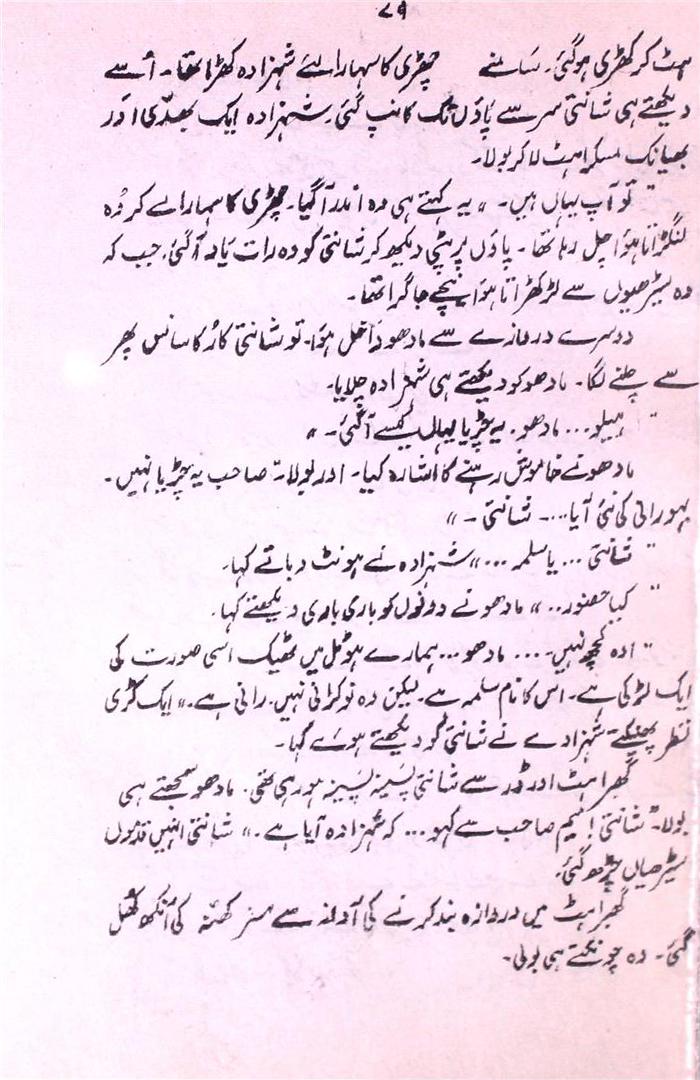 ۷۹
ہٹ کر کھڑی ہوگئی۔ سامنے چھڑی کا سہارا لئے شہزادہ کھڑا تھا۔ اُسے
دیکھتے ہی شانتی سر سے پاؤں تک کانپ گئی۔ شہزادہ ایک بھدّی اور
بھیانک مسکراہٹ لاکر بولا۔
" تو آپ یہاں ہیں۔ " یہ کہتے ہی وہ اندر آگیا۔ چھڑی کا سہارا لے کر وہ
لنگڑاتا ہوا چل رہا تھا۔ پاؤں پر پٹی دیکھ کر شانتی کو وہ رات یاد آگئی، جب کہ
وہ سیڑھیوں سے لڑکھڑاتا ہوا نیچے جا گرا تھا۔
دوسرے دروازے سے مادھو داخل ہوا۔ تو شانتی کا رُکا سانس پھر
سے چلنے لگا۔ مادھو کو دیکھتے ہی شہزادہ چلایا۔
" ہیلو... مادھو۔ یہ چڑیا یہاں کیسے آگئی۔ "
مادھو نے خاموش رہنے کا اشارہ کیا۔ اور بولا۔ " صاحب یہ چڑیا نہیں۔
بہورانی کی نئی آیا... شانتی۔ "
" شانتی ... یا سلمہ ... " شہزادہ نے ہونٹ دباتے کہا۔
" کیا حضور.. " مادھو نے دونوں کو باری باری دیکھتے کہا۔
" اوہ کچھ نہیں۔... مادھو... ہمارے ہوٹل میں ٹھیک اسی صورت کی
ایک لڑکی ہے۔ اس کا نام سلمہ ہے۔ لیکن وہ نوکرانی نہیں۔ رانی ہے۔ " ایک کڑی
نظر پھینکتے شہزادے نے شانتی کو دیکھتے ہوئے کہا۔
گھبراہٹ اور ڈر سے شانتی پسینہ پسینہ ہو رہی تھی۔ مادھو سمجھتے ہی
بولا۔ " شانتی! میم صاحب سے کہو... کہ شہزادہ آیا ہے۔ " شانتی انہیں قدموں
سیڑھیاں چڑھ گئی۔
گھبراہٹ میں دروازہ بند کرنے کی آواز سے مسز کھنہ کی آنکھ کھل
گئی۔ وہ چونکتے ہی بولی۔